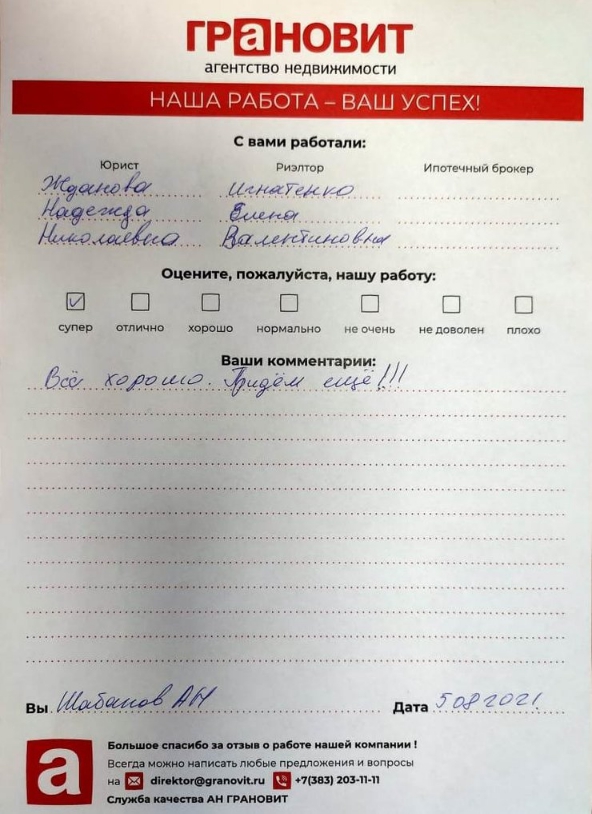 ГРаНОВИТ
агентство недвижимости
НАША РАБОТА – ВАШ УСПЕХ!
С вами работали:
Юрист Риэлтор Ипотечный брокер
Жданова Игнатенко
Надежда Елена
Николаевна Валентиновна
Оцените, пожалуйста, нашу работу:
супер отлично хорошо нормально не очень не доволен плохо
Ваши комментарии:
Всё хорошо. Придём ещё!!!
Вы Шабанов АН Дата 5 08 2021
а
Большое спасибо за отзыв о работе нашей компании !
Всегда можно написать любые предложения и вопросы
на direktor@granovit.ru +7(383) 203-11-11
Служба качества АН ГРАНОВИТ